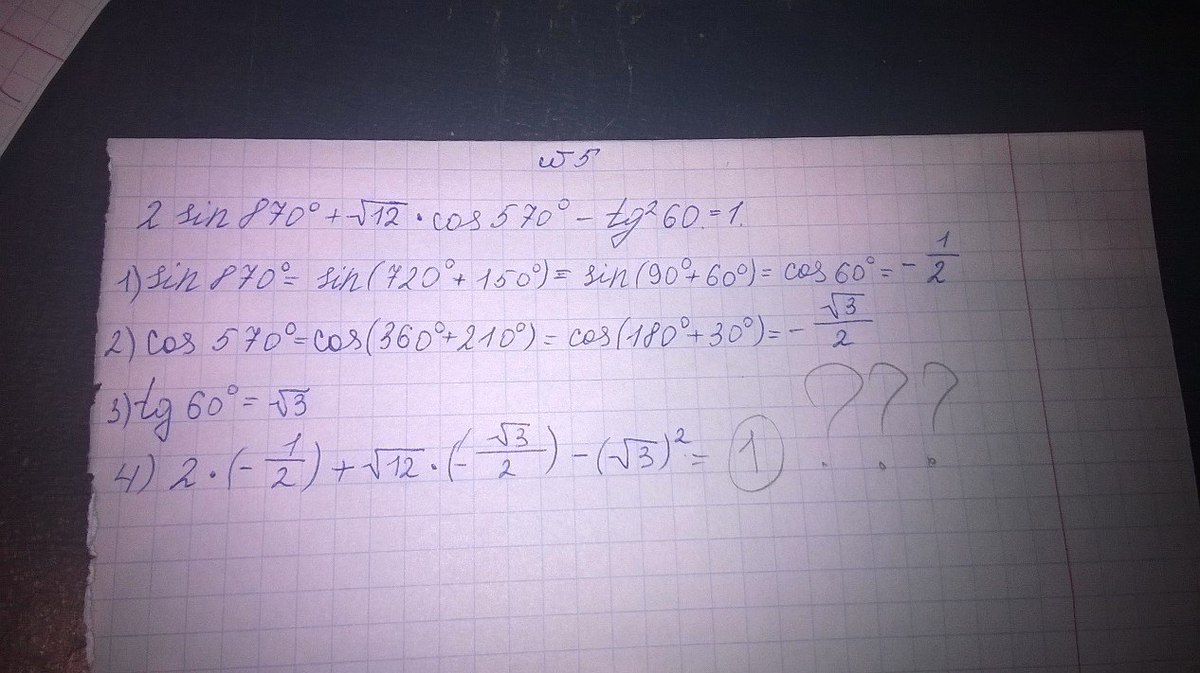 №5
2 sin 870° + √12 · cos 570° − tg²60 = 1.
1) sin 870° = sin(720° + 150°) = sin(90° + 60°) = cos 60° = −1/2
2) cos 570° = cos(360° + 210°) = cos(180° + 30°) = −√3/2
3) tg 60° = √3
4) 2 · (−1/2) + √12 · (−√3/2) − (√3)² = 1 ???